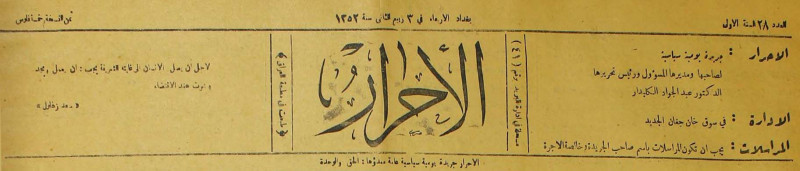 العدد ٢٨ السنة الاولى
بغداد الأربعاء في ٣ ربيع الثاني سنة ١٣٥٢
ثمن النسخة خمسة فلوس
الاحرار : جريدة يومية سياسية
لصاحبها ومديرها المسؤول ورئيس تحريرها
الدكتور عبد الجواد الكليدار
الادارة : في سوق خان جغان الجديد
المراسلات : يجب ان تكون المراسلات باسم صاحب الجريدة وخالصة الاجرة
مسجلة في ادارة البريد برقم (٤١)
الأحرار
طبعت في مطبعة العراق
لاجل ان يصل الانسان الى غايته الشريفة يجب : ان يعمل ويجد
ويثبت عند الاقتضاء
« سعد زغلول »
الاحرار جريدة يومية سياسية عامة مبدؤها: الحق والوحدة